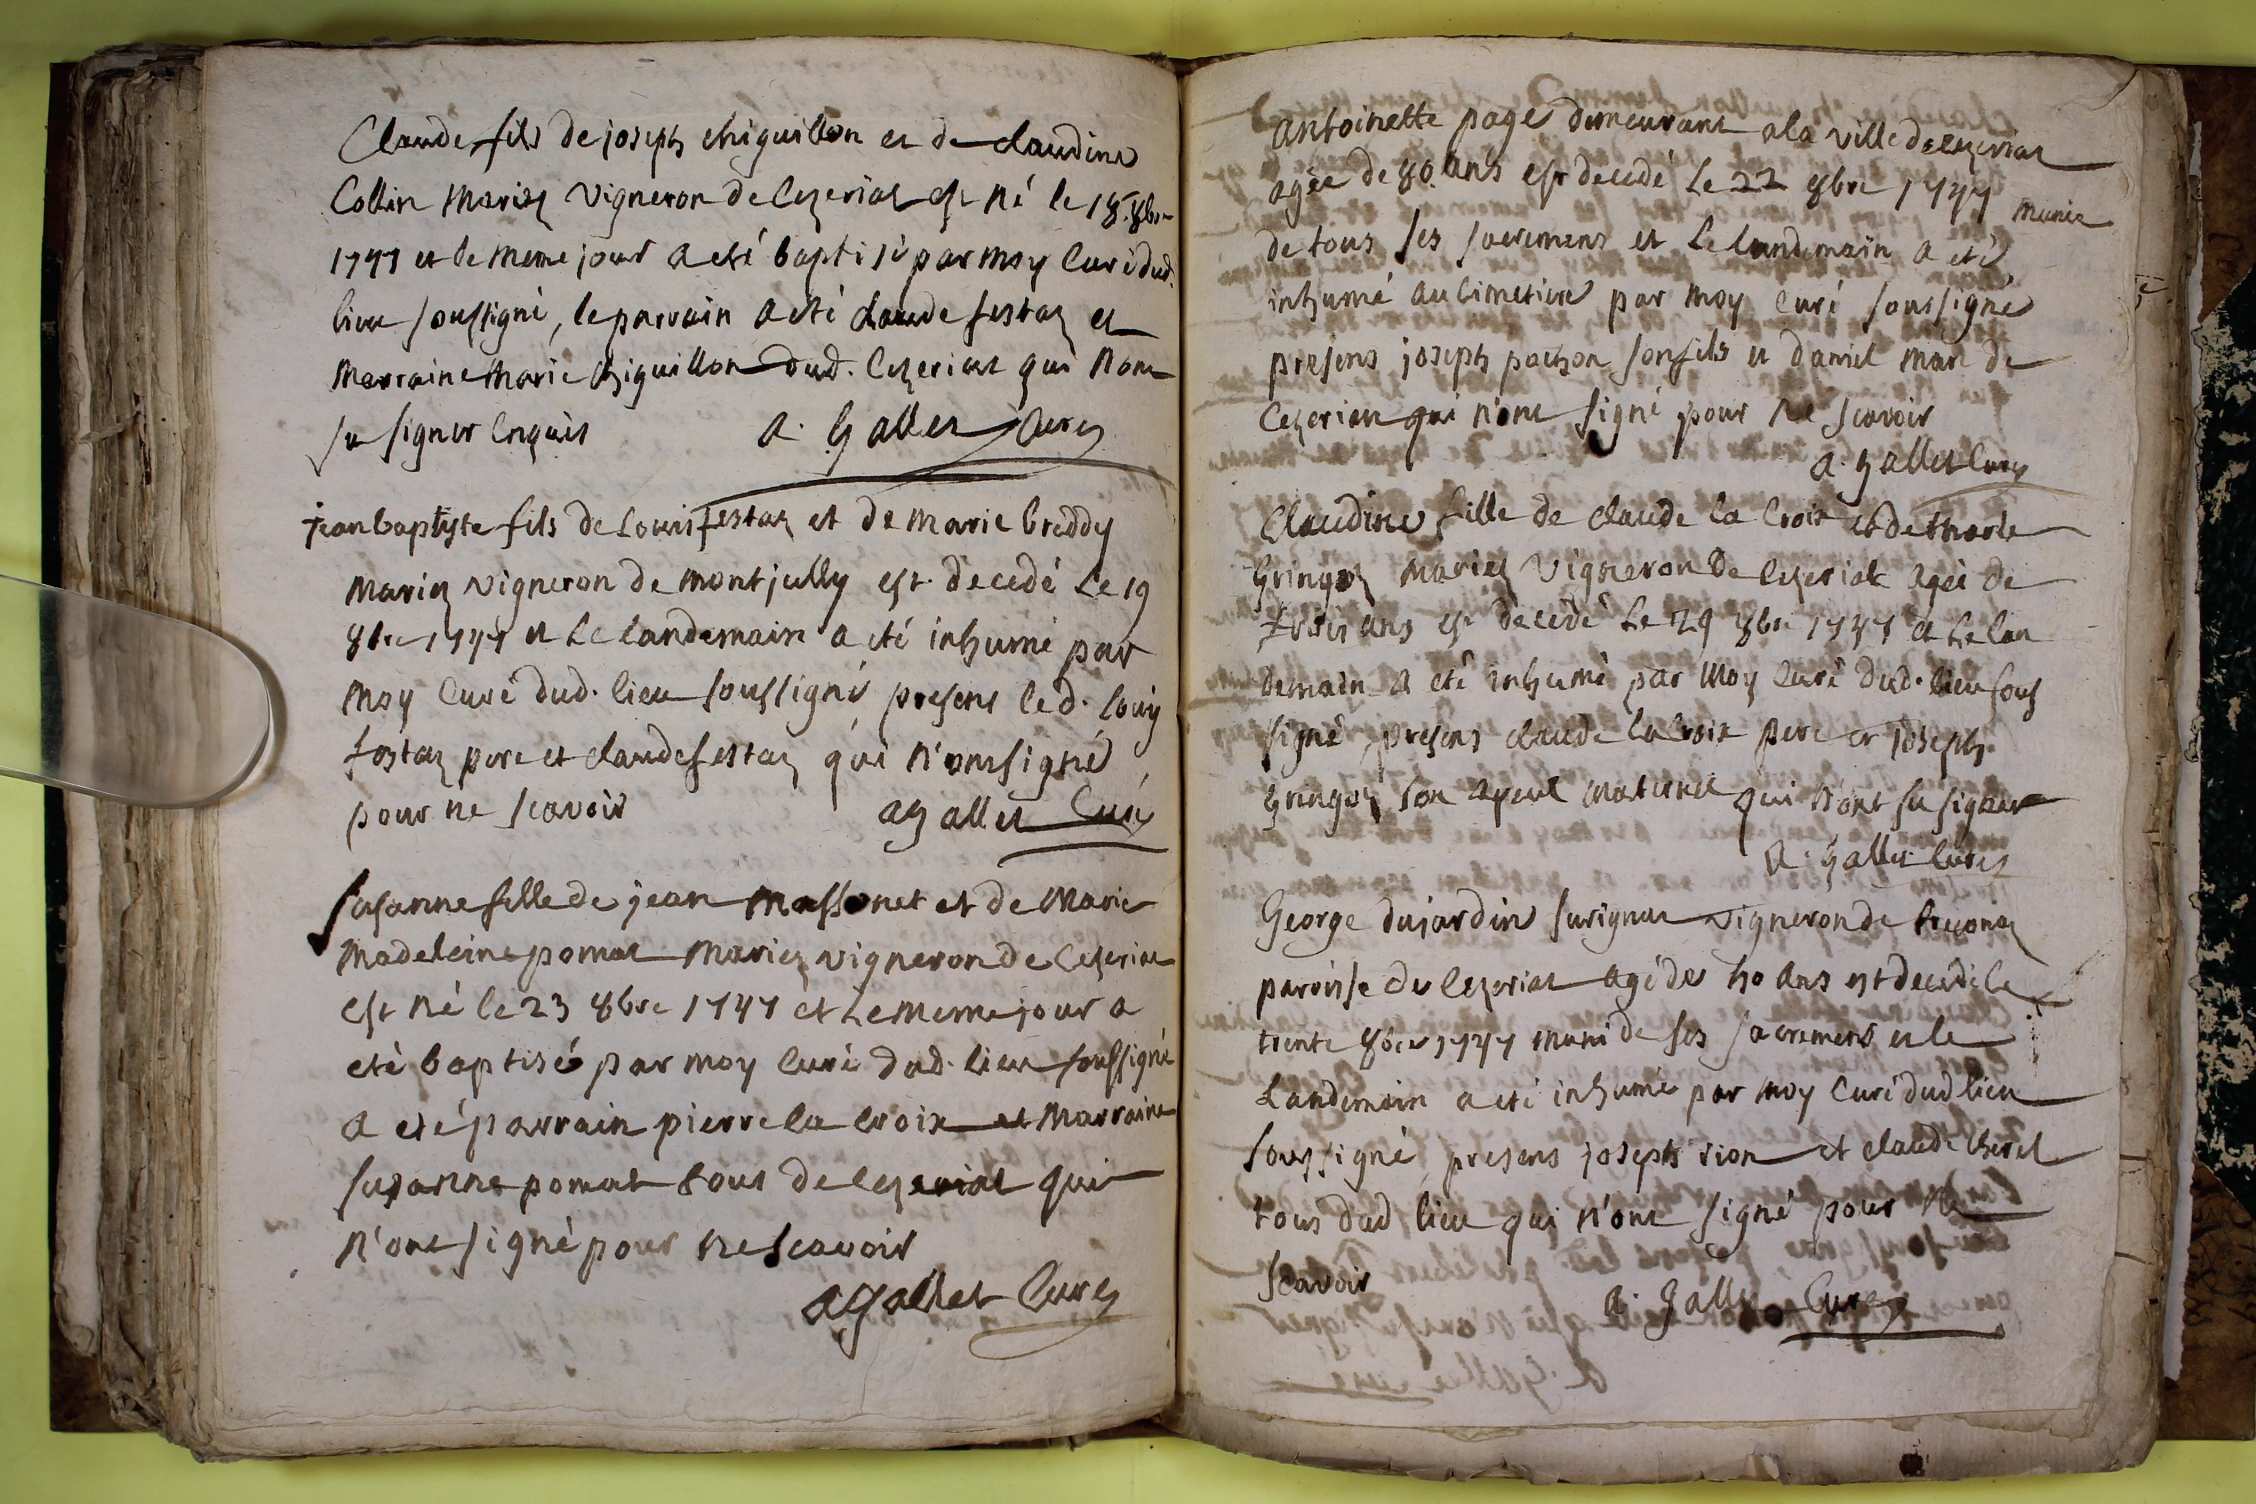 Claude fils de joseph chiguillon et de claudine
Collin Mariez vigneron de Cezeriat est né le 18. 8bre
1747 et le meme jour a eté baptisé par moy Curé dud.
lieu soussigné, le parrain a eté claude festaz et
Marraine Marie chiguillon dud. Cezeriat qui n'ont
su signer Enquis a. Gallet Curez
jean baptyste fils de Louis festaz et de marie breddy
Mariez vigneron de montjully est decedé Le 19
8bre 1747 et Le landemain a eté inhumé par
moy Curé dud. lieu soussigné presens led. Louis
festaz pere et claude festaz qui n'ont signé
pour ne scavoir a Gallet Curé
susanne fille de jean Massonet et de Marie
Madeleine pomat Mariez vigneron de Cezeriat
est né le 23 8bre 1747 et Le meme jour a
eté baptisé par moy Curé dud. lieu soussigné
a eté parrain pierre la croix et Marraine
suzanne pomat tous de Cezeriat qui
n'ont signé pour ne scavoir
a Gallet Curez
antoinette page demeurant a la ville de cezeriat
agée de 80. ans est decedé Le 22 8bre 1747 munie
de tous ses sacremens et Le landemain a eté
inhumé au cimetiere par moy Curé soussigné
presens joseph pochon son fils et daniel Marc de
Cezeriat qui n'ont signé pour ne scavoir
a. Gallet Curez
Claudine fille de claude la Croix et de Marie
Gringoz Mariez vigneron de Cezeriat agée de
trois ans est decedé Le 29 8bre 1747 et Le lan
demain a eté inhumé par Moy Curé dud. lieu sous
signé, presens claude la Croix pere et joseph
Gringoz son ayeul maternel qui n'ont su signer
a. Gallet Curez
George dujardin surignat vigneron de
paroisse de Cezeriat agé de ans est decedé le
trente 8bre 1747 muni de ses sacremens et le
Landemain a eté inhumé par moy Curé dud lieu
soussigné, presens joseph rion et claude cherel
tous dud lieu qui n'ont signé pour ne
scavoir
a. Gallet Curez